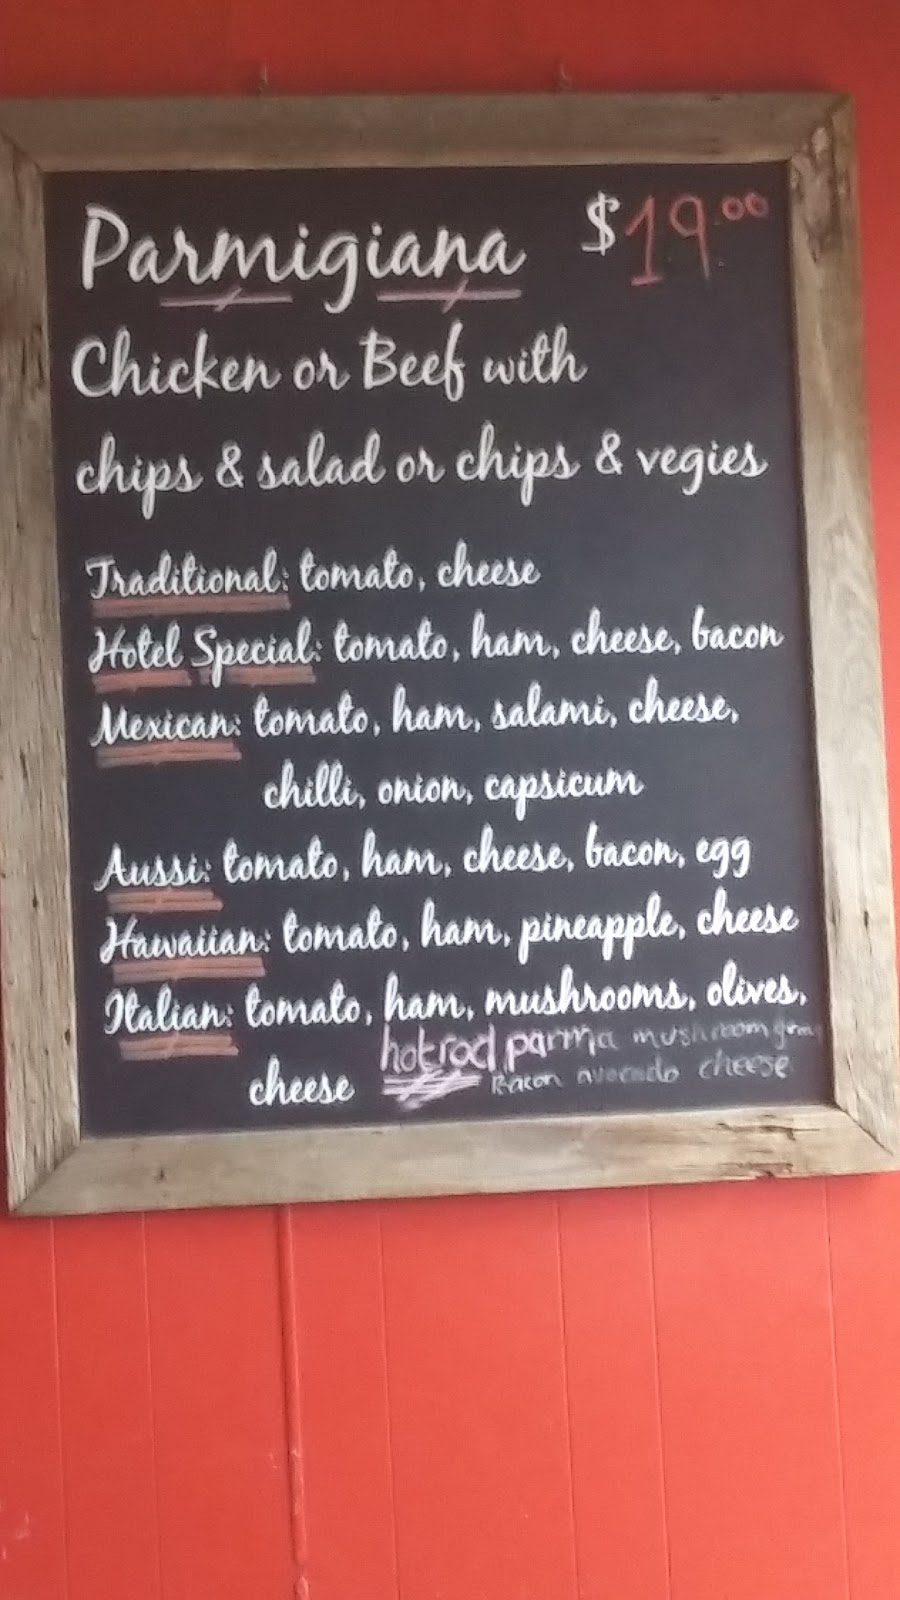 Parmigiana $19.00
Chicken or Beef with
chips & salad or chips & vegies
Traditional: tomato, cheese
Hotel Special: tomato, ham, cheese, bacon
Mexican: tomato, ham, salami, cheese,
chilli, onion, capsicum
Aussi: tomato, ham, cheese, bacon, egg
Hawaiian: tomato, ham, pineapple, cheese
Italian: tomato, ham, mushrooms, olives,
cheese
hotrod parma mushroom
Bacon avocado cheese